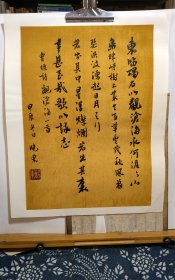 東臨碣石以觀滄海水何澹澹山
島竦峙樹木叢生百草豐茂秋風蕭
瑟洪波湧起日月之行
若出其中星漢燦爛若出其裏
幸甚至哉歌以詠志
曹操詩觀滄海一首